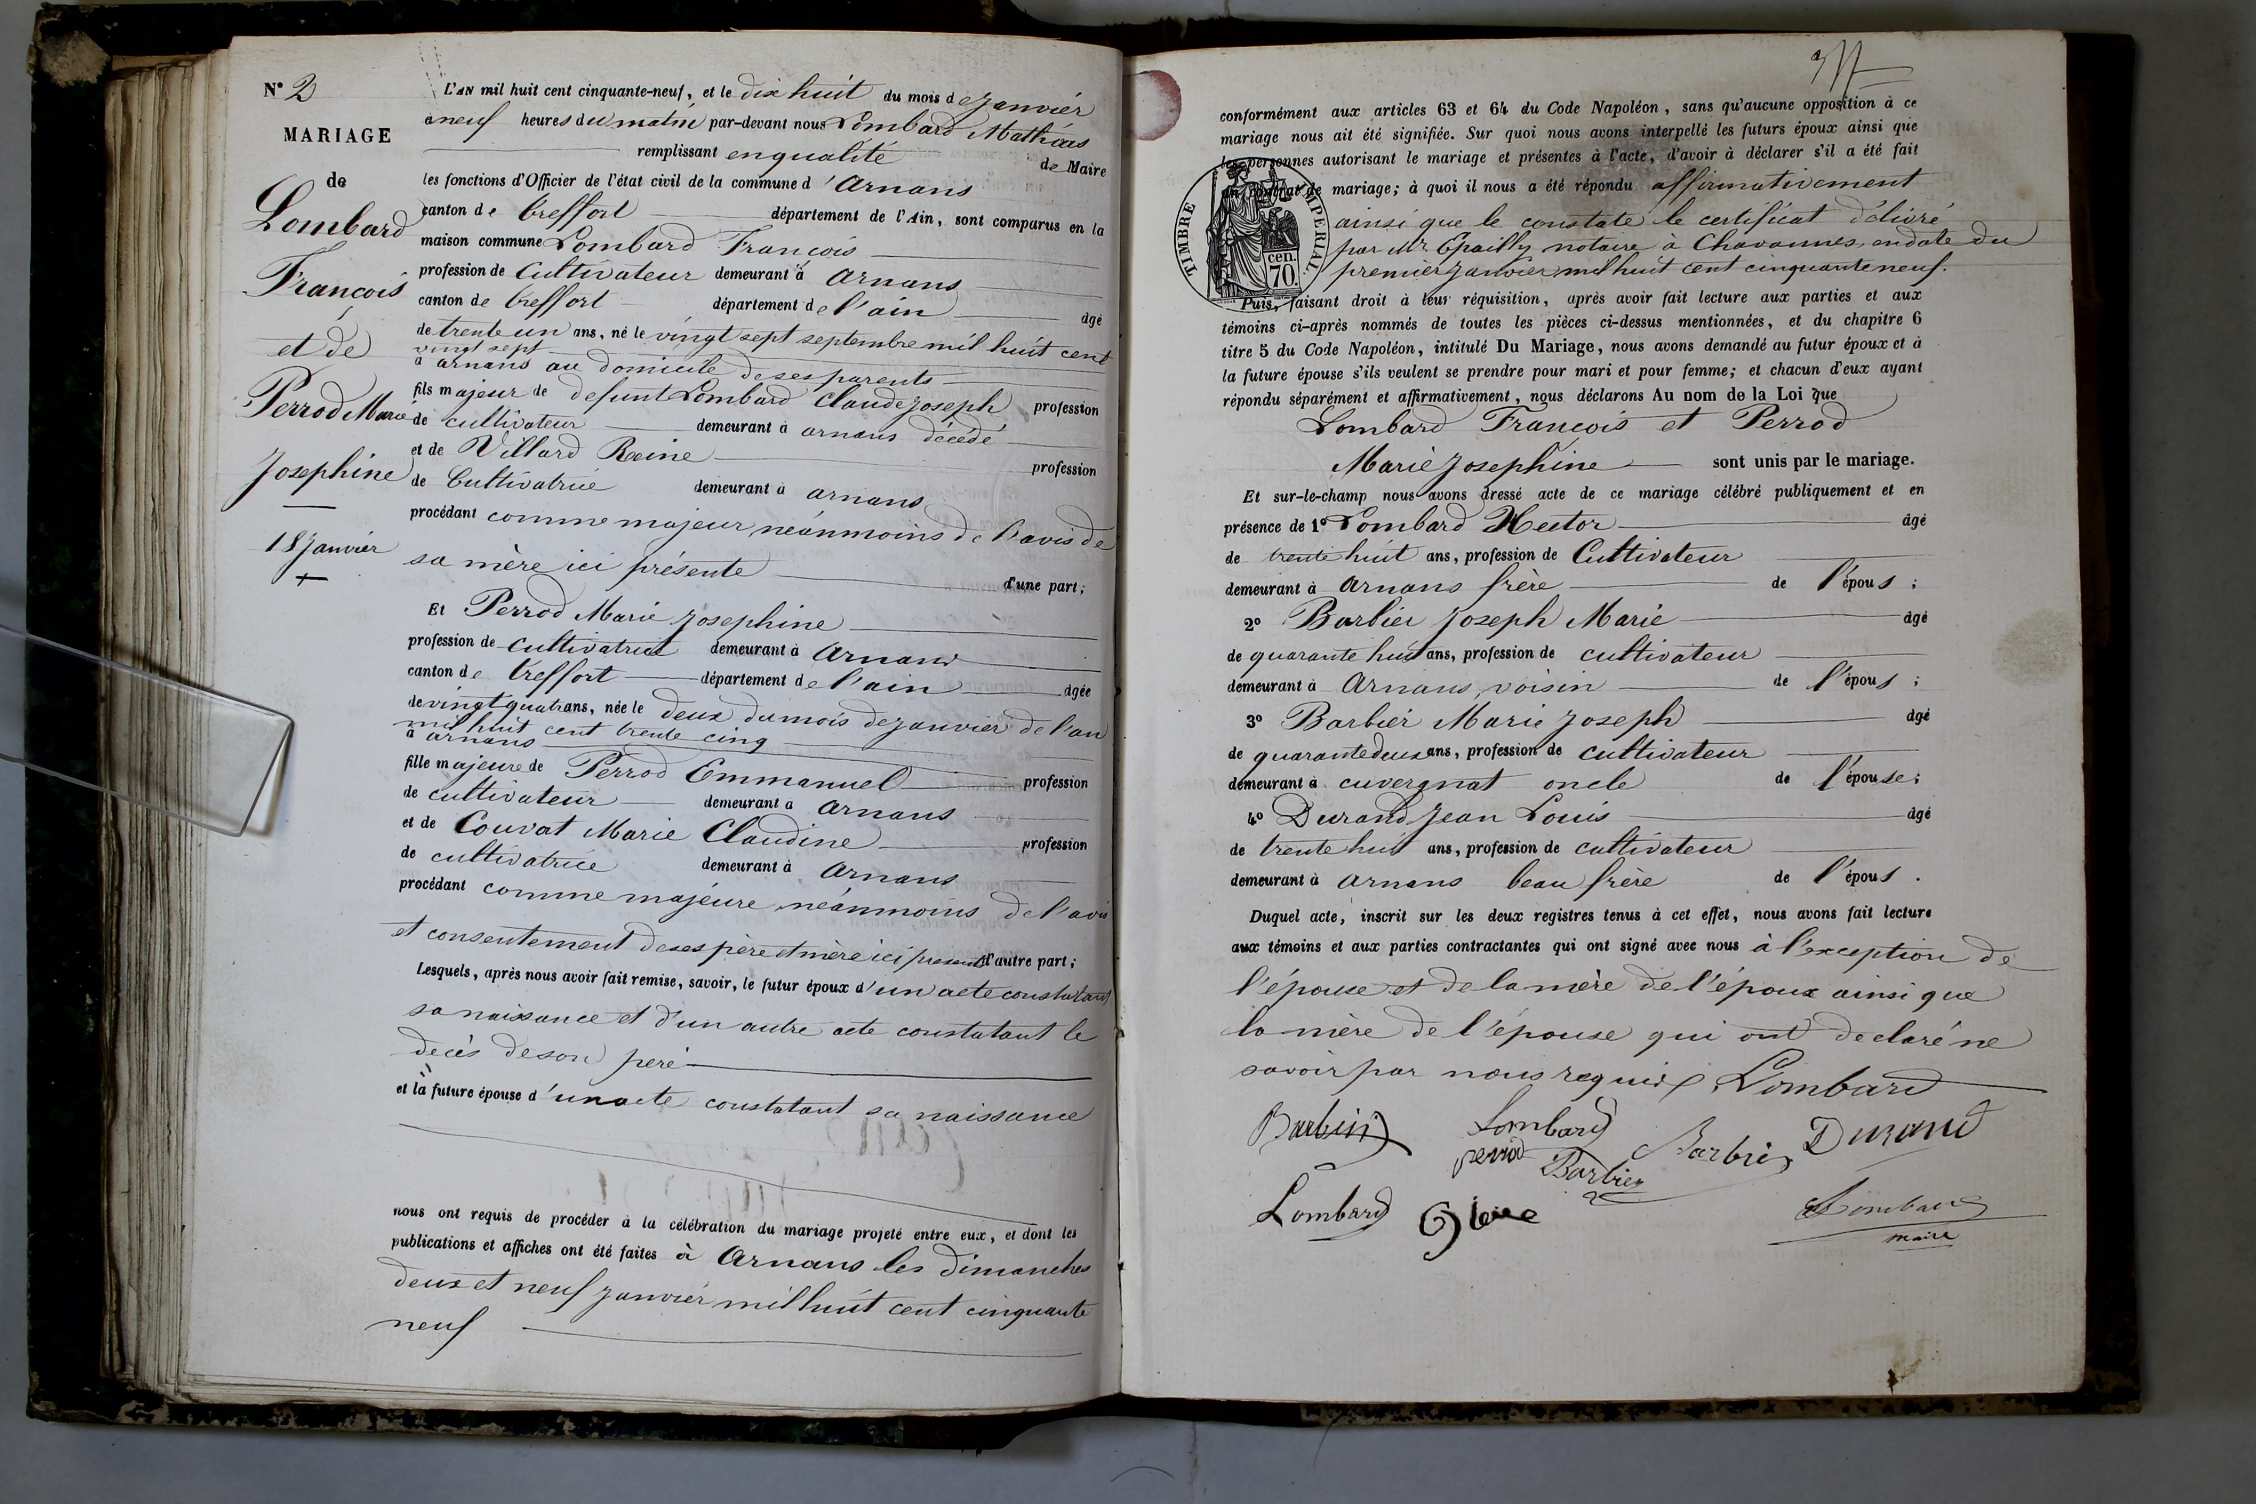 N° 2
MARIAGE
de
Lombard
François
et de
Perrod Marie
Josephine
18 janvier
L'AN mil huit cent cinquante-neuf, et le dix huit du mois de janvier
à neuf heures du matin par-devant nous Lombard Mathias
remplissant en qualité de Maire
les fonctions d'Officier de l'état civil de la commune d'Arnans
canton de treffort département de l'Ain, sont comparus en la
maison commune Lombard François
profession de Cultivateur demeurant à Arnans
canton de treffort département de l'ain âgé
de trente un ans, né le vingt sept septembre mil huit cent
vingt sept
à arnans au domicile de ses parents
fils majeur de defunt Lombard Claude Joseph profession
de cultivateur demeurant à arnans décédé
et de Villard Reine profession
de Cultivatrice demeurant à arnans
procédant comme majeur néanmoins de l'avis de
sa mère ici présente d'une part;
Et Perrod Marie Josephine
profession de cultivatrice demeurant à Arnans
canton de treffort département de l'ain âgée
de vingt quatre ans, née le deux du mois de janvier de l'an
mil huit cent trente cinq
à arnans
fille majeure de Perrod Emmanuel profession
de cultivateur demeurant à arnans
et de Couvat Marie Claudine profession
de cultivatrice demeurant à Arnans
procédant comme majeure néanmoins de l'avis
et consentement de ses père et mère ici present d'autre part;
Lesquels, après nous avoir fait remise, savoir, le futur époux d'un acte constatant
sa naissance et d'un autre acte constatant le
decès de son pere
et la future épouse d'un acte constatant sa naissance
nous ont requis de procéder à la célébration du mariage projeté entre eux, et dont les
publications et affiches ont été faites à Arnans les dimanches
deux et neuf janvier mil huit cent cinquante
neuf
conformément aux articles 63 et 64 du Code Napoléon, sans qu'aucune opposition à ce
mariage nous ait été signifiée. Sur quoi nous avons interpellé les futurs époux ainsi que
les personnes autorisant le mariage et présentes à l'acte, d'avoir à déclarer s'il a été fait
un contrat de mariage; à quoi il nous a été répondu affirmativement
TIMBRE IMPERIAL.
cen.
70.
ainsi que le constate le certificat délivré
par Mr Epailly notaire à Chavannes en date du
premier janvier mil huit cent cinquante neuf.
Puis, faisant droit à leur réquisition, après avoir fait lecture aux parties et aux
témoins ci-après nommés de toutes les pièces ci-dessus mentionnées, et du chapitre 6
titre 5 du Code Napoléon, intitulé Du Mariage, nous avons demandé au futur époux et à
la future épouse s'ils veulent se prendre pour mari et pour femme; et chacun d'eux ayant
répondu séparément et affirmativement, nous déclarons Au nom de la Loi que
Lombard François et Perrod
Marie Josephine sont unis par le mariage.
Et sur-le-champ nous avons dressé acte de ce mariage célébré publiquement et en
présence de 1° Lombard Hector âgé
de trente huit ans, profession de Cultivateur
demeurant à Arnans frère de l'époux;
2° Barbier Joseph Marie âgé
de quarante huit ans, profession de cultivateur
demeurant à Arnans, voisin de l'époux;
3° Barbier Marie Joseph âgé
de quarante deux ans, profession de cultivateur
demeurant à cuvergnat oncle de l'épouse;
4° Durand Jean Louis âgé
de trente huit ans, profession de cultivateur
demeurant à arnans beau frère de l'époux.
Duquel acte, inscrit sur les deux registres tenus à cet effet, nous avons fait lecture
aux témoins et aux parties contractantes qui ont signé avec nous à l'exception de
l'épouse et de la mère de l'époux ainsi que
la mère de l'épouse qui ont declaré ne
savoir par nous requis. Lombard
Barbier Lombard Barbier Durand
perrod Barbier
Lombard Lombard
maire